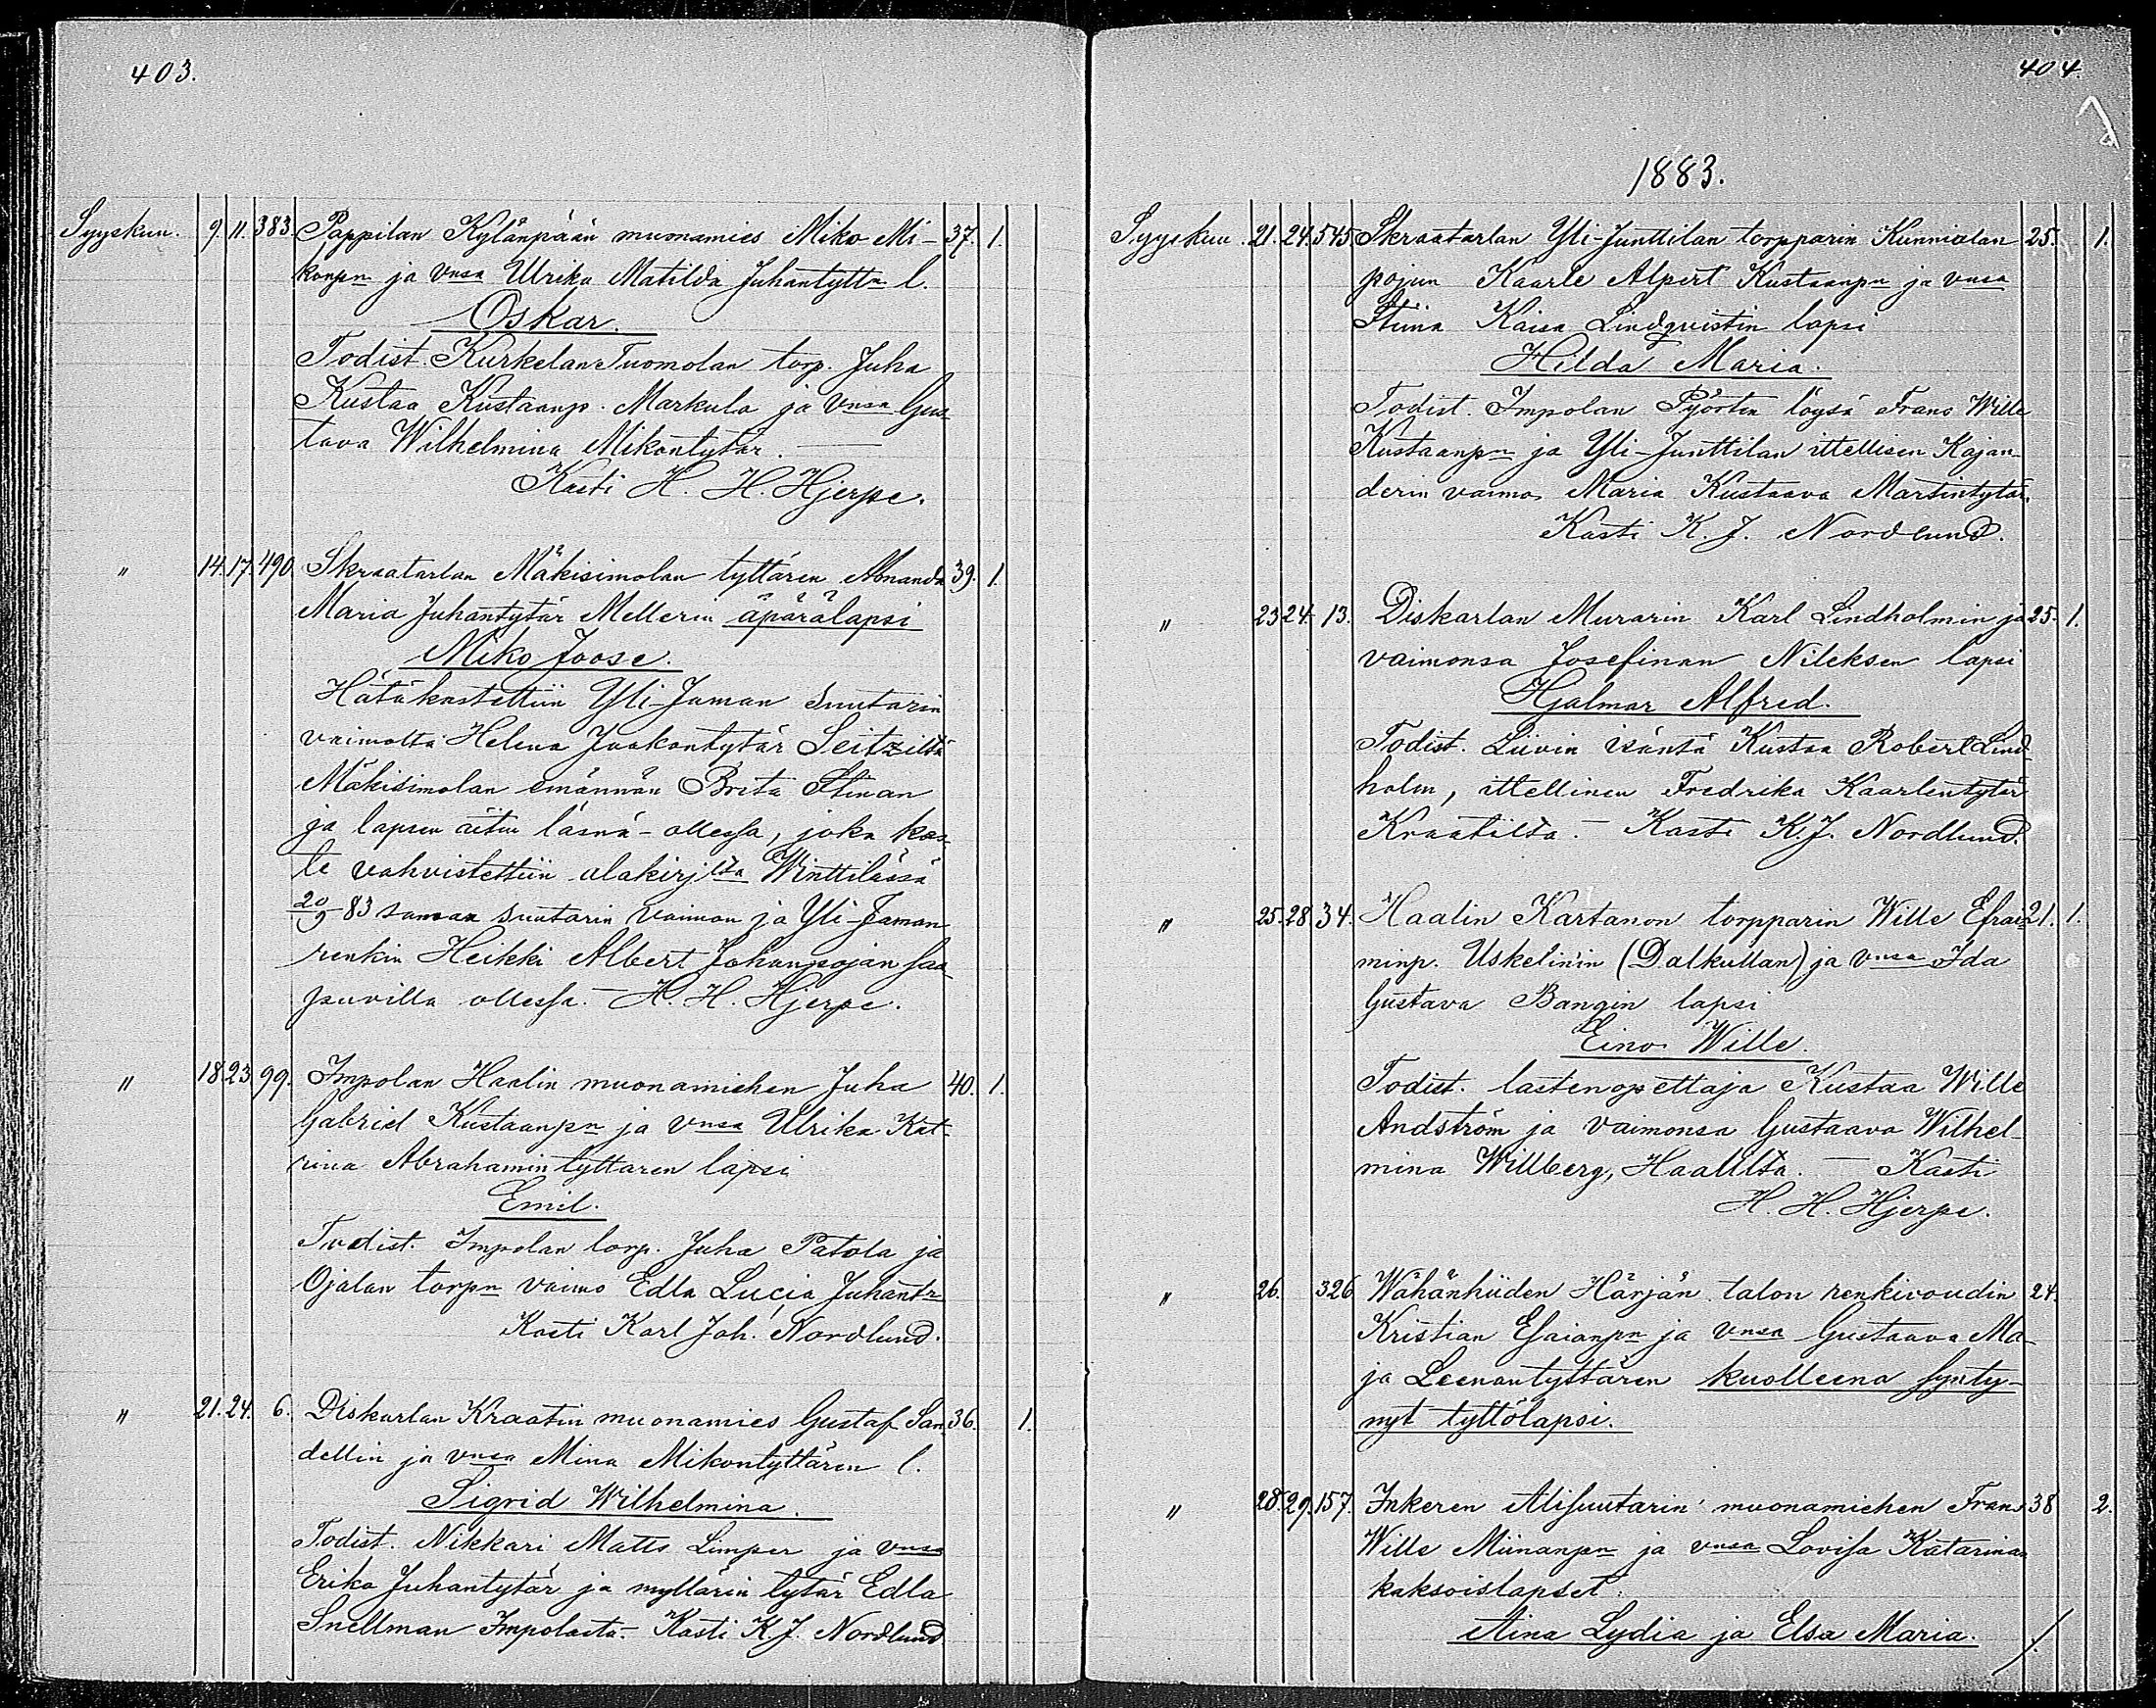 403.
Syyskuu. 9. 11. 383. Pappilan Kylänpään muonamies Miko Mi- 37. 1.
konpn ja vnsa Ulrika Matilda Juhantyttn l.
Oskar.
Todist. Kurkelan Tuomolan torp. Juha
Kustaa Kustaanp. Markula ja vnsa Gus-
tava Wilhelmina Mikontytär.
Kasti H. H. Hjerpe.
" 14. 17. 490. Skraatarlan Mäkisimolan tyttären Amanda 39. 1.
Maria Juhantytär Mellerin äpärälapsi
Miko Joose.
Hätäkastettiin Yli-Jaman Suutarin
vaimolta Helena Jaakontytär Seitziltä
Mäkisimolan emännän Brita Stinan
ja lapsen äitin läsnä-ollessa, joka kas-
te vahvistettiin alakirjlta Winttilässä
20/9 83 saman suutarin vaimon ja Yli-Jaman
renkin Heikki Albert Johanpojan saa-
puvilla ollessa. – H. H. Hjerpe.
" 18. 23. 99. Impolan Haalin muonamiehen Juha 40. 1.
Gabriel Kustaanpn ja vnsa Ulrika Kat-
rina Abrahamin tyttaren lapsi
Emil.
Todist. Impolan torp. Juha Patola ja
Ojalan torpn vaimo Edla Lucia Juhantr
Kasti Karl Joh. Nordlund.
" 21. 24. 6. Diskarlan Kraatin muonamies Gustaf San- 36. 1.
dellin ja vnsa Mina Mikontyttären l.
Sigrid Wilhelmina.
Todist. Nikkari Matts Limper ja vnsa
Erika Juhantytär ja myllärin tytär Edla
Snellman Impolasta. – Kasti K. J. Nordlund
404.
1883.
Syyskuu. 21. 24. 545. Skraatarlan Yli-Junttilan torpparin Kunnialan 25. 1.
pojun Kaarle Alpert Kustaanpn ja vnsa
Stiina Kaisa Lindqvistin lapsi
Hilda Maria.
Todist. Impolan Pyörtin löysä Frans Wille
Kustaanpn ja Yli-Junttilan ittellisen Kajan-
derin vaimo Maria Kustaava Martintytär.
Kasti K. J. Nordlund.
" 23. 24. 13. Diskarlan Murarin Karl Lindholmin ja 25. 1.
vaimonsa Josefinan Nileksen lapsi
Hjalmar Alfred.
Todist. Liivin isäntä Kustaa Robert Lind-
holm, ittellinen Fredrika Kaarlentytär
Kraatilta. – Kasti K. J. Nordlund.
" 25. 28. 34. Haalin Kartanon torpparin Wille Efrai- 21. 1.
minp. Uskelin'in (Dalkullan) ja vnsa Ida
Gustava Bangin lapsi
Eino Wille.
Todist. lastenopettaja Kustaa Wille
Andström ja vaimonsa Gustaava Wilhel-
mina Willberg, Haalilta. – Kasti
H. H. Hjerpe.
" 26. 326 Wähänhiiden Härjän talon renkivoudin 24.
Kristian Esaianpn ja vnsa Gustaava Ma-
ja Leenantyttären kuolleena synty-
nyt tyttölapsi.
" 28. 29. 157. Inkeren Alisuutarin muonamiehen Frans 38 2.
Wille Miinanpn ja vnsa Lovisa Katarinan
kaksoislapset.
Aina Lydia ja Elsa Maria.